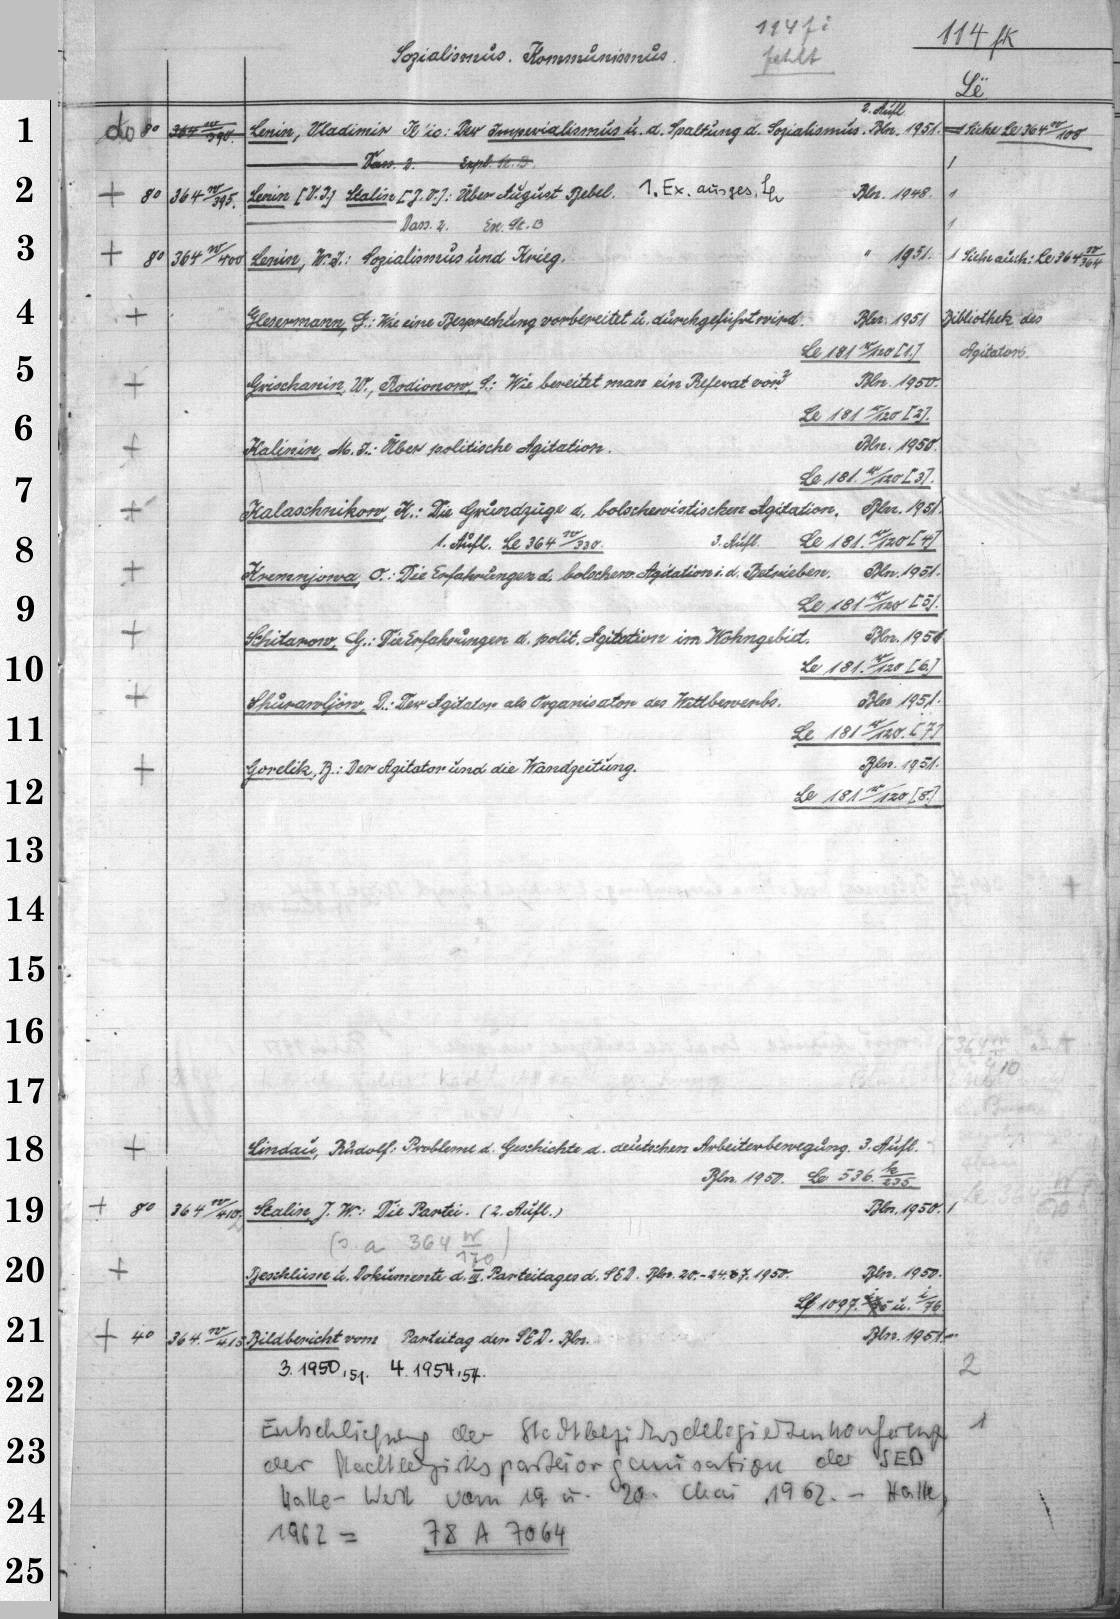 114 fi
fehlt
114 fk
Sozialismus. Kommunismus.
Le
2. Aufl.
1 do 8° 364 w/390. Lenin, Vladimir Il'ic: Der Imperialismus u. d. Spaltung d. Sozialismus. Bln. 1951. Siehe Le 364 w/108
Dass. 2. Expl. St. B. 1
2 + 8° 364 w/395. Lenin [V. I.] Stalin [J. V.]: Über August Bebel. 1. Ex. ausges. Bln. 1948. 1
Dass. 2. Ex. St. B 1
3 + 8° 364 w/400 Lenin, W. I.: Sozialismus und Krieg. " 1951. 1 Siehe auch: Le 364 w/364
4 + Glesermann, G.: Wie eine Besprechung vorbereitet u. durchgeführt wird. Bln. 1951 Bibliothek des
Le 181 w/120 [1.] Agitators.
5 + Grischanin, W., Rodionow, S.: Wie bereitet man ein Referat vor? Bln. 1950.
Le 181 w/120 [2].
6 + Kalinin, M. I.: Über politische Agitation. Bln. 1950.
7 Le 181. w/120 [3].
+ Kalaschnikow, K.: Die Grundzüge d. bolschewistischen Agitation. Bln. 1951.
8 1. Aufl. Le 364 w/330. 3. Aufl. Le 181. w/120 [4]
+ Kremnjowa, O.: Die Erfahrungen d. bolschew. Agitation i. d. Betrieben. Bln. 1951.
9 Le 181 w/120 [5].
+ Schitarow, G.: Die Erfahrungen d. polit. Agitation im Wohngebiet. Bln. 1951.
10 Le 181. w/120 [6.]
+ Shurawljow, D.: Der Agitator als Organisator des Wettbewerbs. Bln. 1951.
11 Le 181 w/120. [7.]
+ Gorelik, B.: Der Agitator und die Wandzeitung. Bln. 1951.
12 Le 181 w/120 [8.]
13
14
15
16
17
18 + Lindau, Rudolf: Probleme d. Geschichte d. deutschen Arbeiterbewegung. 3. Aufl.
Bln. 1950. Le 536. k/235
19 + 8° 364 w/410. Stalin, J. W.: Die Partei. (2. Aufl.) Bln. 1950. 1
(s. a 364 w/170)
20 + Beschlüsse u. Dokumente d. III. Parteitages d. SED. Bln. 20.-24.7. 1950. Bln. 1950.
Lf 1097. u. i/76
21 + 4° 364. w/415 Bildbericht vom Parteitag der SED. Bln. Bln. 1951.
3. 1950,51. 4. 1954,54. 2
22
Entschließung der Stadtbezirksdelegiertenkonferenz 1
23 der Stadtbezirksparteiorganisation der SED
24 Halle-West vom 19. u. 20. Mai 1962. - Halle,
1962 = 78 A 7064
25